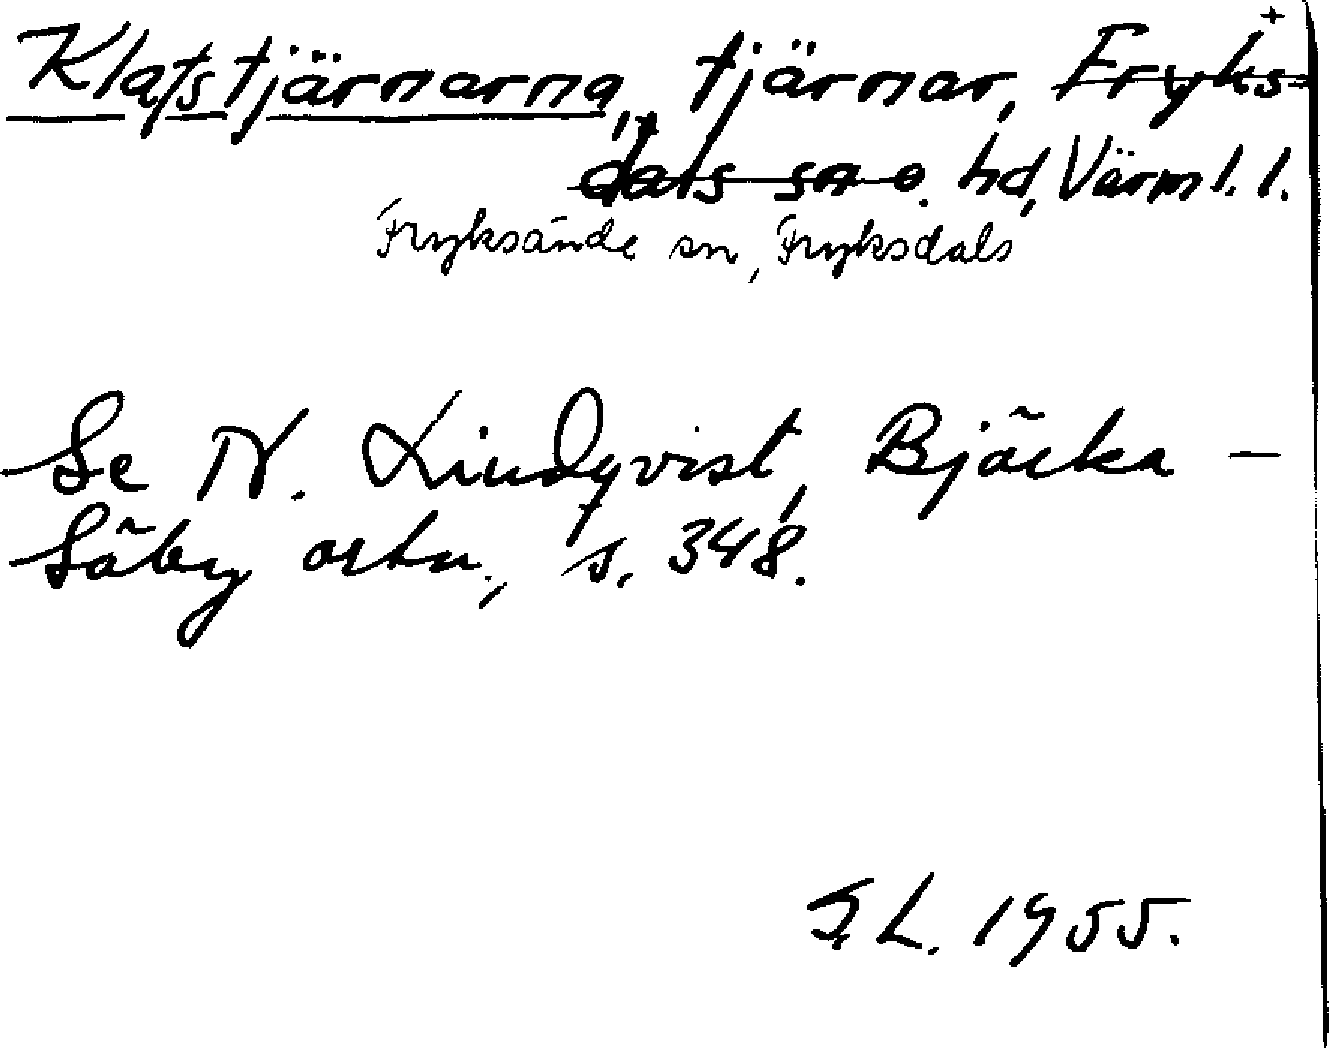 Klatstjärnarna, tjärnar, Fryks- +
dals sn o. hd, Värml. l.
Fryksände sn, Fryksdals
Se N. Lindqvist, Bjärka –
Säby ortn., s. 348.
F. L. 1955.